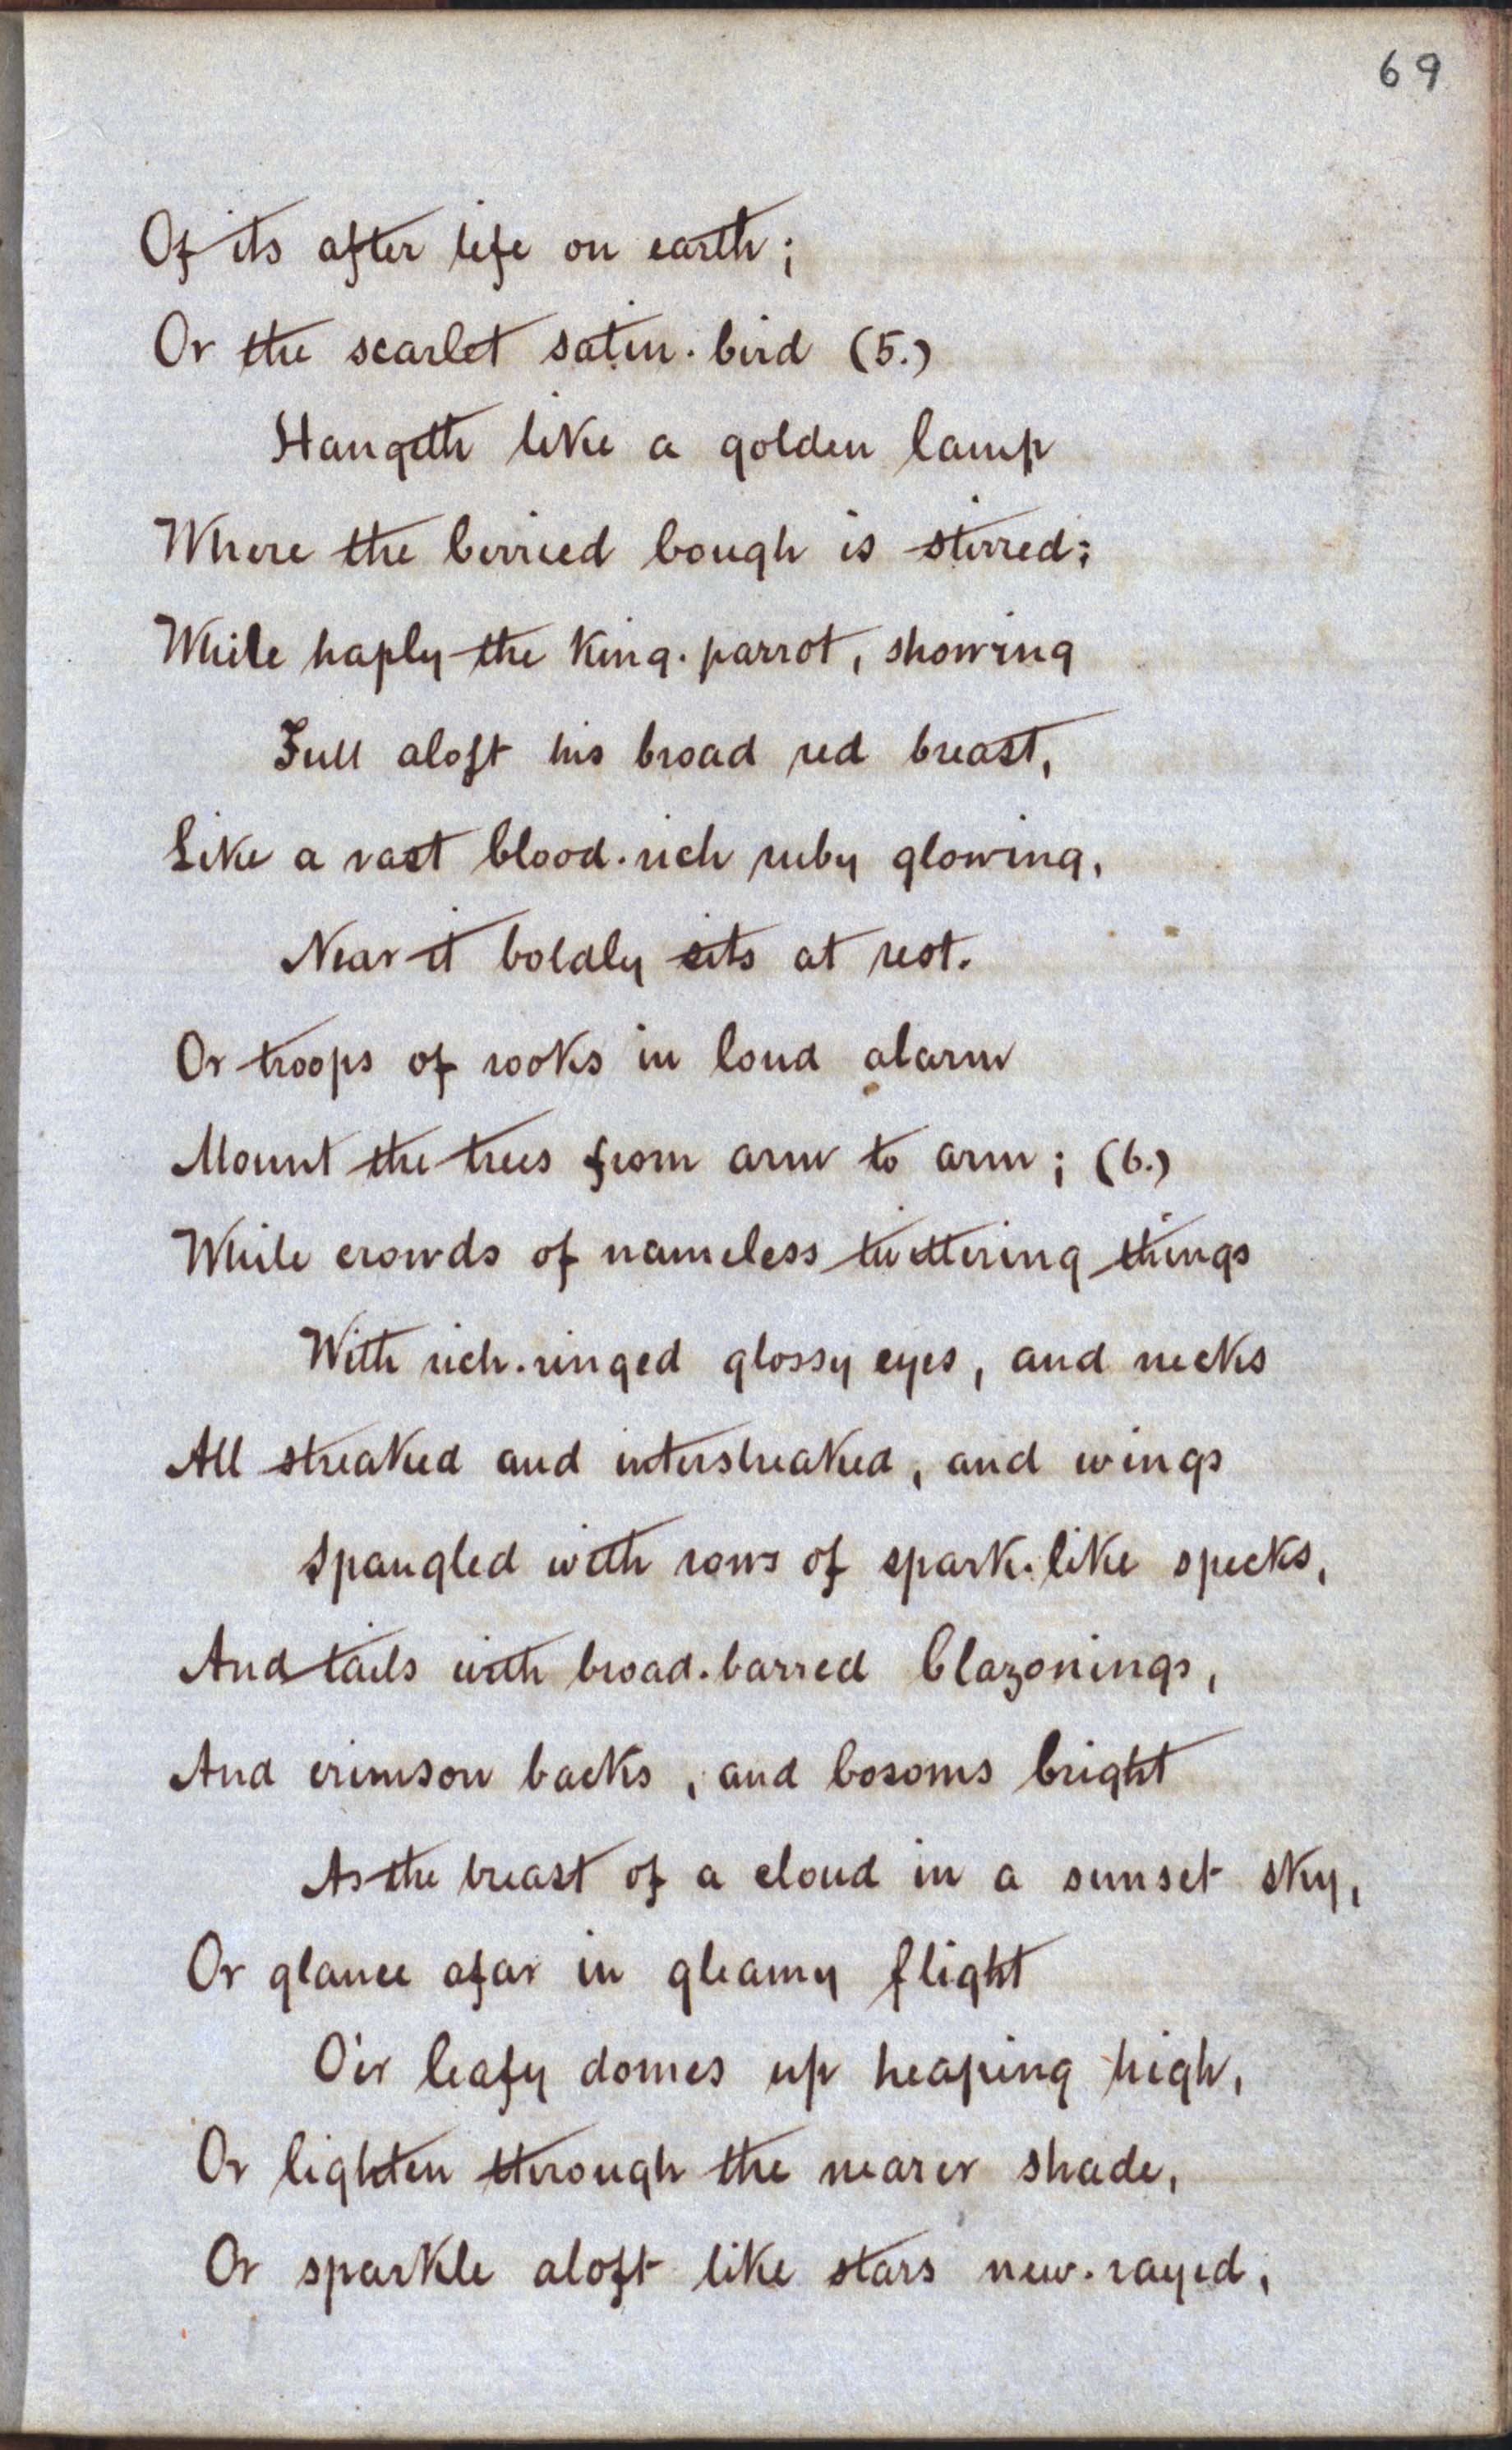 69
Of its after life on earth;
Or the scarlet satin-bird (5.)
Hangeth like a golden lamp
Where the berried bough is stirred;
While haply the King-parrot, showing
Full aloft his broad red breast,
Like a vast blood-rich ruby glowing,
Near it boldly sits at rest.
Or troops of rooks in loud alarm
Mount the trees from arm to arm; (6.)
While crowds of nameless twittering things
With rich-ringed glossy eyes, and necks
All streaked and interstreaked, and wings
Spangled with rows of spark-like specks,
And tails with broad-barred blazonings,
And crimson backs, and bosoms bright
As the breast of a cloud in a sunset sky,
Or glance afar in gleamy flight
O'er leafy domes up heaping high,
Or lighten through the nearer shade,
Or sparkle aloft like stars new-rayed,